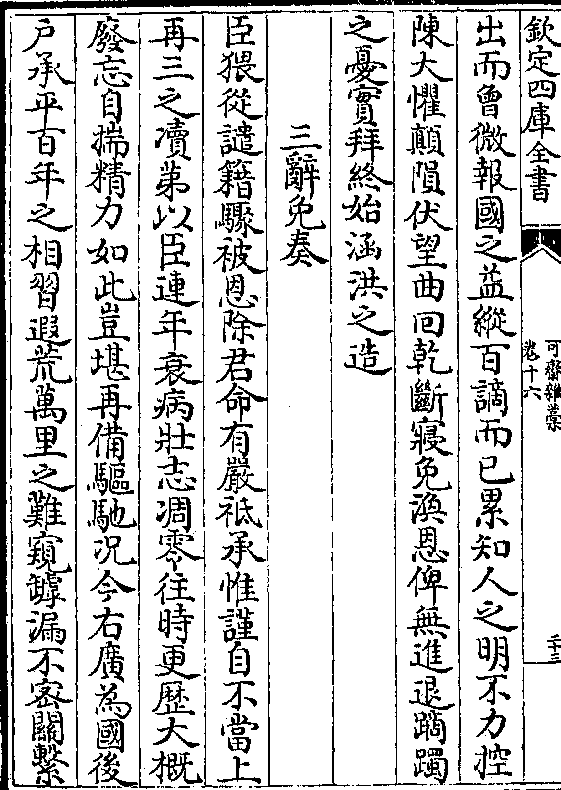 欽定四庫全書
可齋雜藁
卷十六
二十三
出而曾微報國之益縱百謫而已累知人之明不力控
陳大懼顛隕伏望曲回乾斷寢免渙恩俾無進退蹢躅
之憂實拜終始涵洪之造
三辭免奏
臣猥從譴籍驟被恩除君命有嚴祗承惟謹自不當上
再三之凟苐以臣連年衰病壯志凋零往時更歴大概
廢忘自揣精力如此豈堪再備驅馳况今右廣為國後
户承平百年之相習遐荒萬里之難窺罅漏不宻關繫